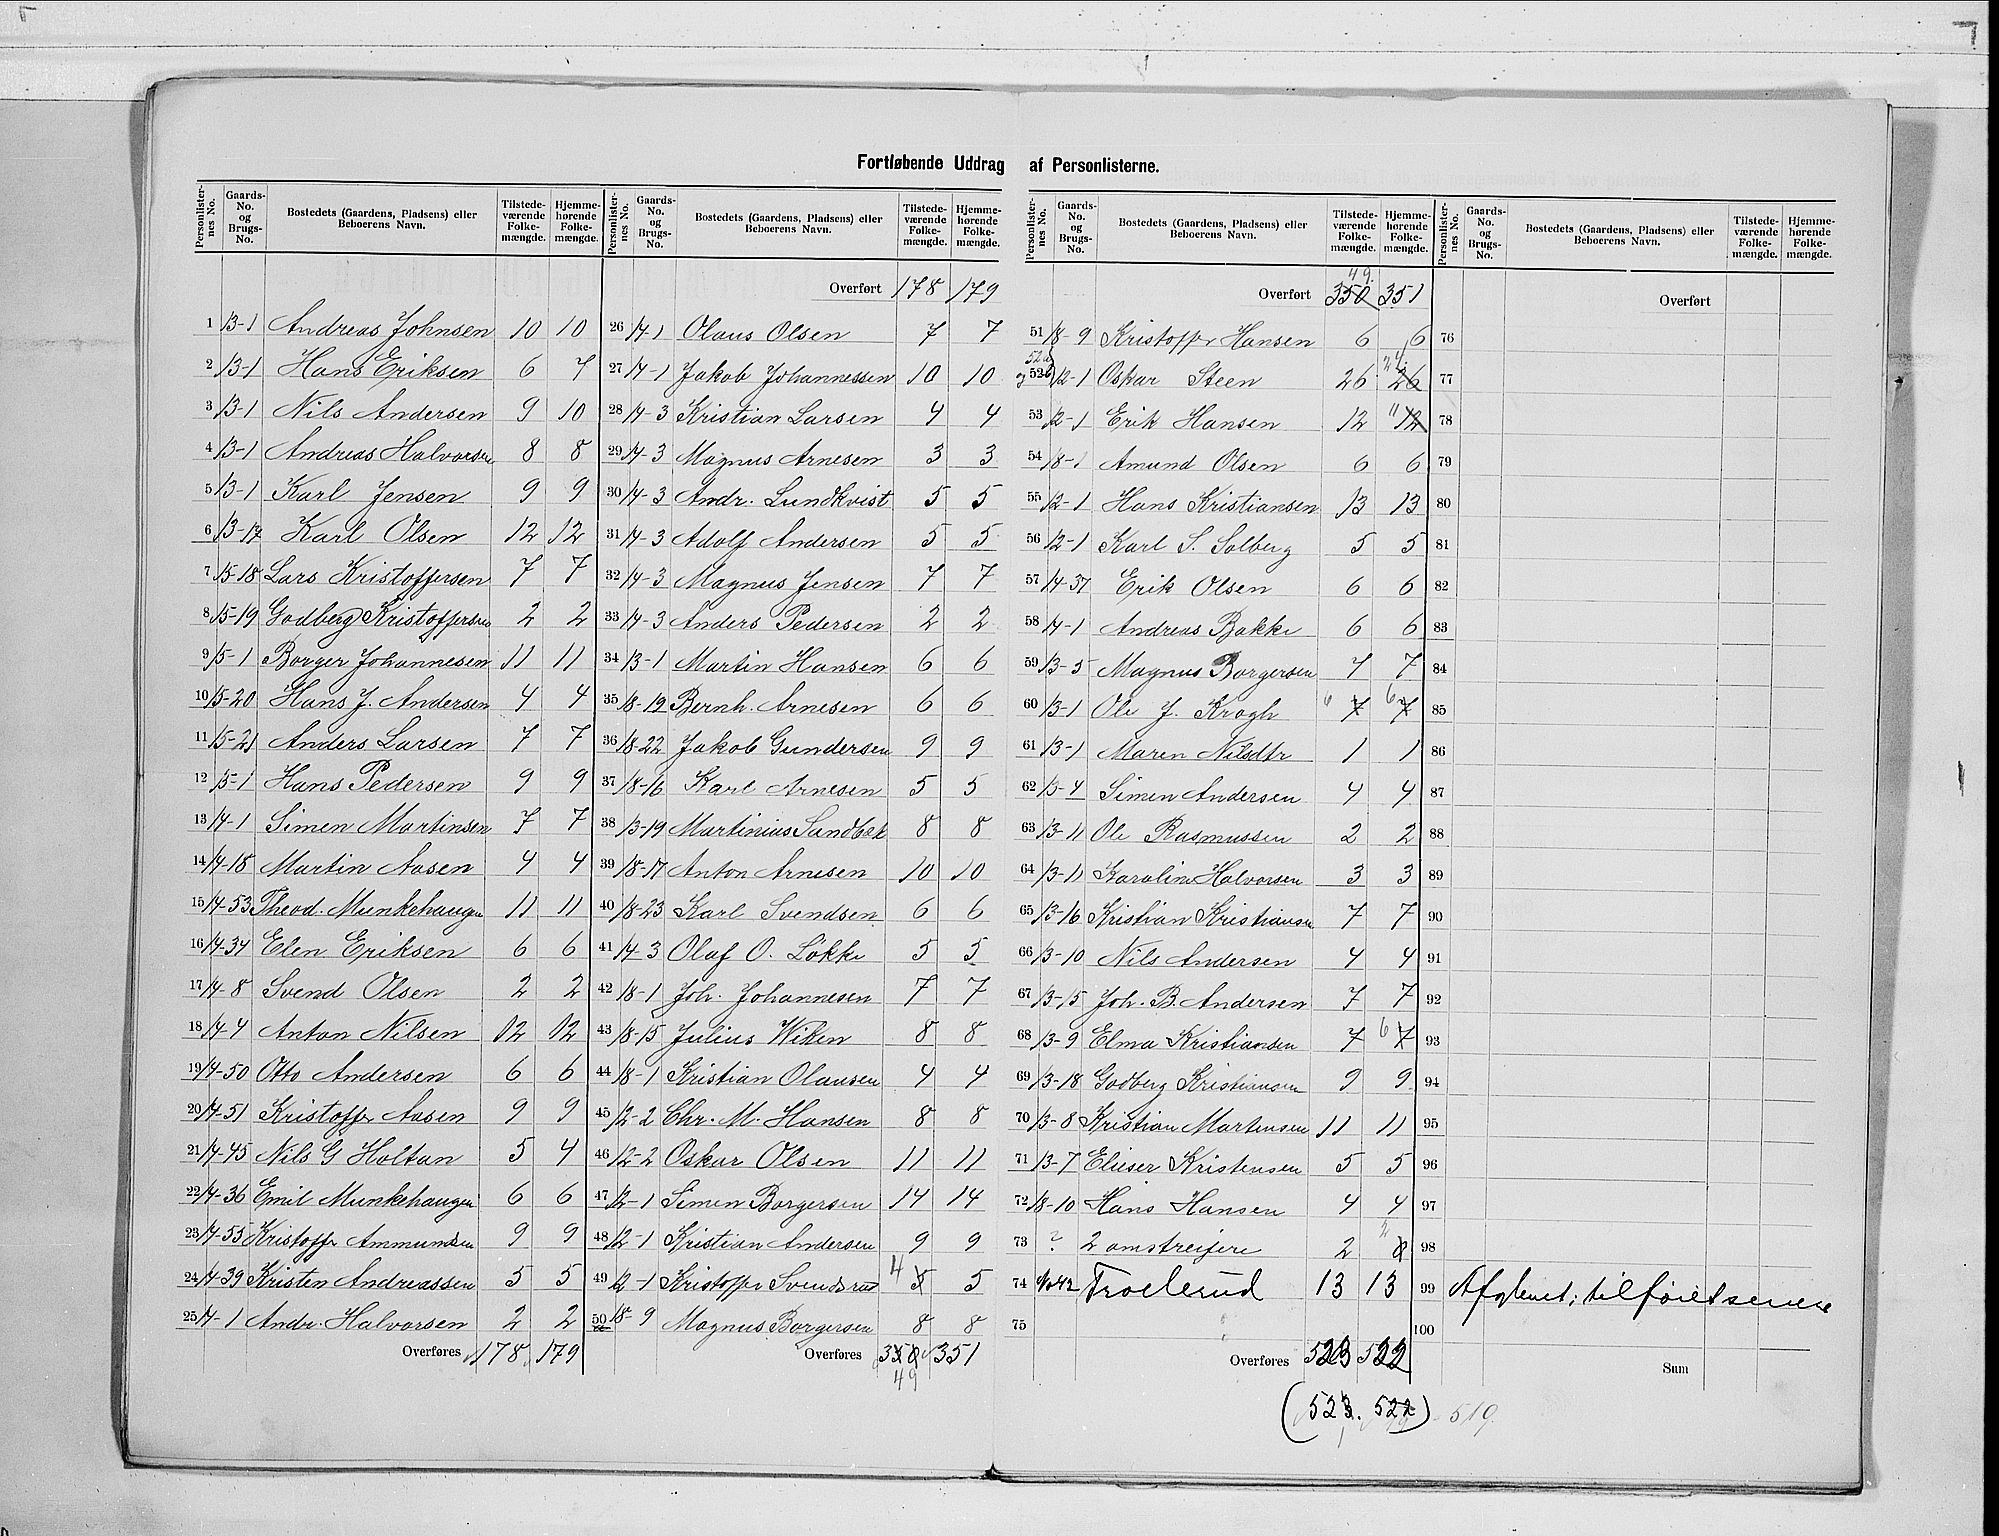 Fortløbende Uddrag af Personlisterne.
Personlisternes No. Gaards-No. og Brugs-No. Bostedets (Gaardens, Pladsens) eller Beboerens Navn. Tilstedeværende Folkemængde. Hjemmehørende Folkemængde.
1 13-1 Andreas Johnsen 10 10
2 13-1 Hans Eriksen 6 7
3 13-1 Nils Andersen 9 10
4 13-1 Andreas Halvorsen 8 8
5 13-1 Karl Jensen 9 9
6 13-17 Karl Olsen 12 12
7 15-18 Lars Kristoffersen 7 7
8 15-19 Godberg Kristoffersen 2 2
9 15-1 Borger Johannesen 11 11
10 15-20 Hans J. Andersen 4 4
11 15-21 Anders Larsen 7 7
12 15-1 Hans Pedersen 9 9
13 14-1 Simen Martinsen 7 7
14 14-18 Martin Aasen 4 4
15 14-53 Theod. Munkehaugen 11 11
16 14-34 Elen Eriksen 6 6
17 14-8 Svend Olsen 2 2
18 14-4 Anton Nilsen 12 12
19 14-50 Otto Andersen 6 6
20 14-51 Kristoffer Aasen 9 9
21 14-45 Nils G Holtan 5 4
22 14-36 Emil Munkehaugen 6 6
23 14-55 Kristoffr Ammundsen 9 9
24 14-39 Kristen Andreassen 5 5
25 14-1 Andr. Halvorsen 2 2
Overføres 178 179
Personlisternes No. Gaards-No. og Brugs-No. Bostedets (Gaardens, Pladsens) eller Beboerens Navn. Tilstedeværende Folkemængde. Hjemmehørende Folkemængde.
Overført 178 179
26 14-1 Olaus Olsen 7 7
27 14-1 Jakob Johannessen 10 10
28 14-3 Kristian Larsen 4 4
29 14-3 Magnus Arnesen 3 3
30 14-3 Andr. Lundkvist 5 5
31 14-3 Adolf Andersen 5 5
32 14-3 Magnus Jensen 7 7
33 14-3 Anders Pedersen 2 2
34 13-1 Martin Hansen 6 6
35 18-19 Bernh. Arnesen 6 6
36 18-22 Jakob Gundersen 9 9
37 18-16 Karl Arnesen 5 5
38 13-19 Martinius Sandbæk 8 8
39 18-17 Anton Arnesen 10 10
40 18-23 Karl Svendsen 6 6
41 14-3 Olaf O. Løkke 5 5
42 18-1 Joh. Johannesen 7 7
43 18-15 Julius Wiken 8 8
44 18-1 Kristian Olausen 4 4
45 12-2 Chr. M. Hansen 8 8
46 12-2 Oskar Olsen 11 11
47 12-1 Simen Borgersen 14 14
48 12-1 Kristian Andersen 9 9
49 12-1 Kristoffer Svendsrud 4 5 5
50 18-9 Magnus Borgersen 8 8
Overføres 350 351
49
Personlisternes No. Gaards-No. og Brugs-No. Bostedets (Gaardens, Pladsens) eller Beboerens Navn. Tilstedeværende Folkemængde. Hjemmehørende Folkemængde.
49
Overført 350 351
51 18-9 Kristoffr Hansen 6 6
52a og 52b 12-1 Oskar Steen 26 24 26
53 12-1 Erik Hansen 12 11 12
54 18-1 Amund Olsen 6 6
55 12-1 Hans Kristiansen 13 13
56 12-1 Karl S. Solberg 5 5
57 14-37 Erik Olsen 6 6
58 14-1 Andreas Bakke 6 6
59 13-5 Magnus Borgersen 7 7
60 13-1 Ole J. Krogh 6 7 6 7
61 13-1 Maren Nilsdtr 1 1
62 13-4 Simen Andersen 4 4
63 13-11 Ole Rasmussen 2 2
64 13-11 Karoline Halvorsen 3 3
65 13-16 Kristian Kristiansen 7 7
66 13-10 Nils Andersen 4 4
67 13-15 Joh. B. Andersen 7 7
68 13-9 Elma Kristiansen 7 6 7
69 13-18 Godberg Kristiansen 9 9
70 13-8 Kristian Martensen 11 11
71 13-7 Elieser Kristensen 5 5
72 18-10 Hans Hansen 4 4
73 ? 2 omstreifere 2 2
74 Troelerud 13 13
75
Overføres 523 522
(523. 522) 519
Personlisternes No. Gaards-No. og Brugs-No. Bostedets (Gaardens, Pladsens) eller Beboerens Navn. Tilstedeværende Folkemængde. Hjemmehørende Folkemængde.
Overført
76
77
78
79
80
81
82
83
84
85
86
87
88
89
90
91
92
93
94
95
96
97
98
99 Afglemt; tilføiet senere
100
Sum